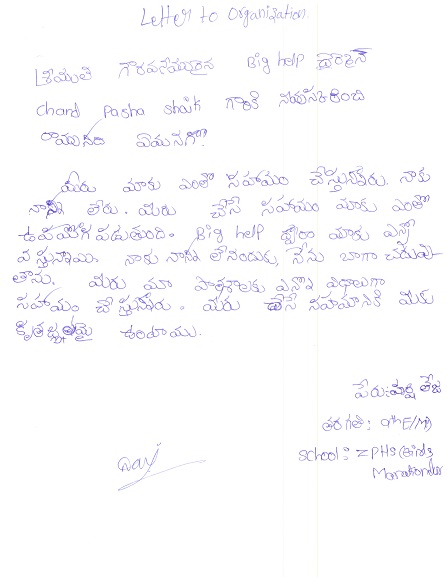 Letter to Organization.
శ్రీమతి గౌరవనీయులైన Big help ఛైర్మాన్
Chand Pasha Shaik గారికి నమస్కరించి
రాయునది ఏమనగా!
మీరు మాకు ఎంతో సహాయం చేస్తున్నారు. నాకు
నాన్న లేరు. మీరు చేసే సహాయం మాకు ఎంతో
ఉపయోగపడుతుంది. Big help ద్వారా మాకు ఎన్నో
వస్తున్నాయి. నాకు నాన్న లేనందుకు, నేను బాగా చదువు
తాను. మీరు మా పాఠశాలకు ఎన్నో విధాలుగా
సహాయం చేస్తున్నారు. మీరు చేసే సహాయానికి మీకు
కృతజ్ఞులమై ఉంటాము.
పేరు: తేజ
తరగతి: 9th E/M
School: ZPHS Girls